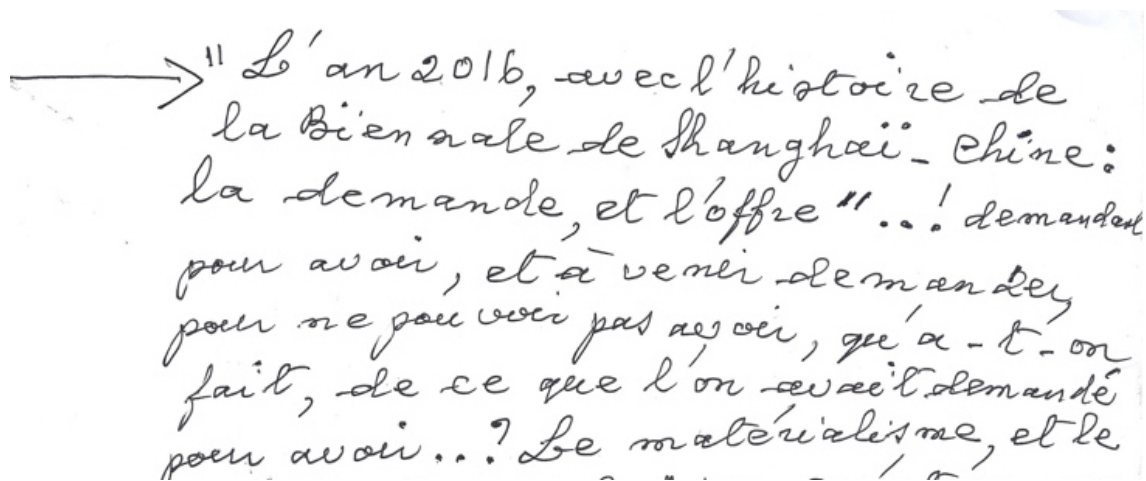 " L'an 2016, avec l'histoire de
la Biennale de Shanghaï - Chine :
la demande, et l'offre " ..! demandant
pour avoir, et à venir demander,
pour ne pouvoir pas avoir, qu'a - t - on
fait, de ce que l'on avait demandé
pour avoir ..? Le matérialisme, et le